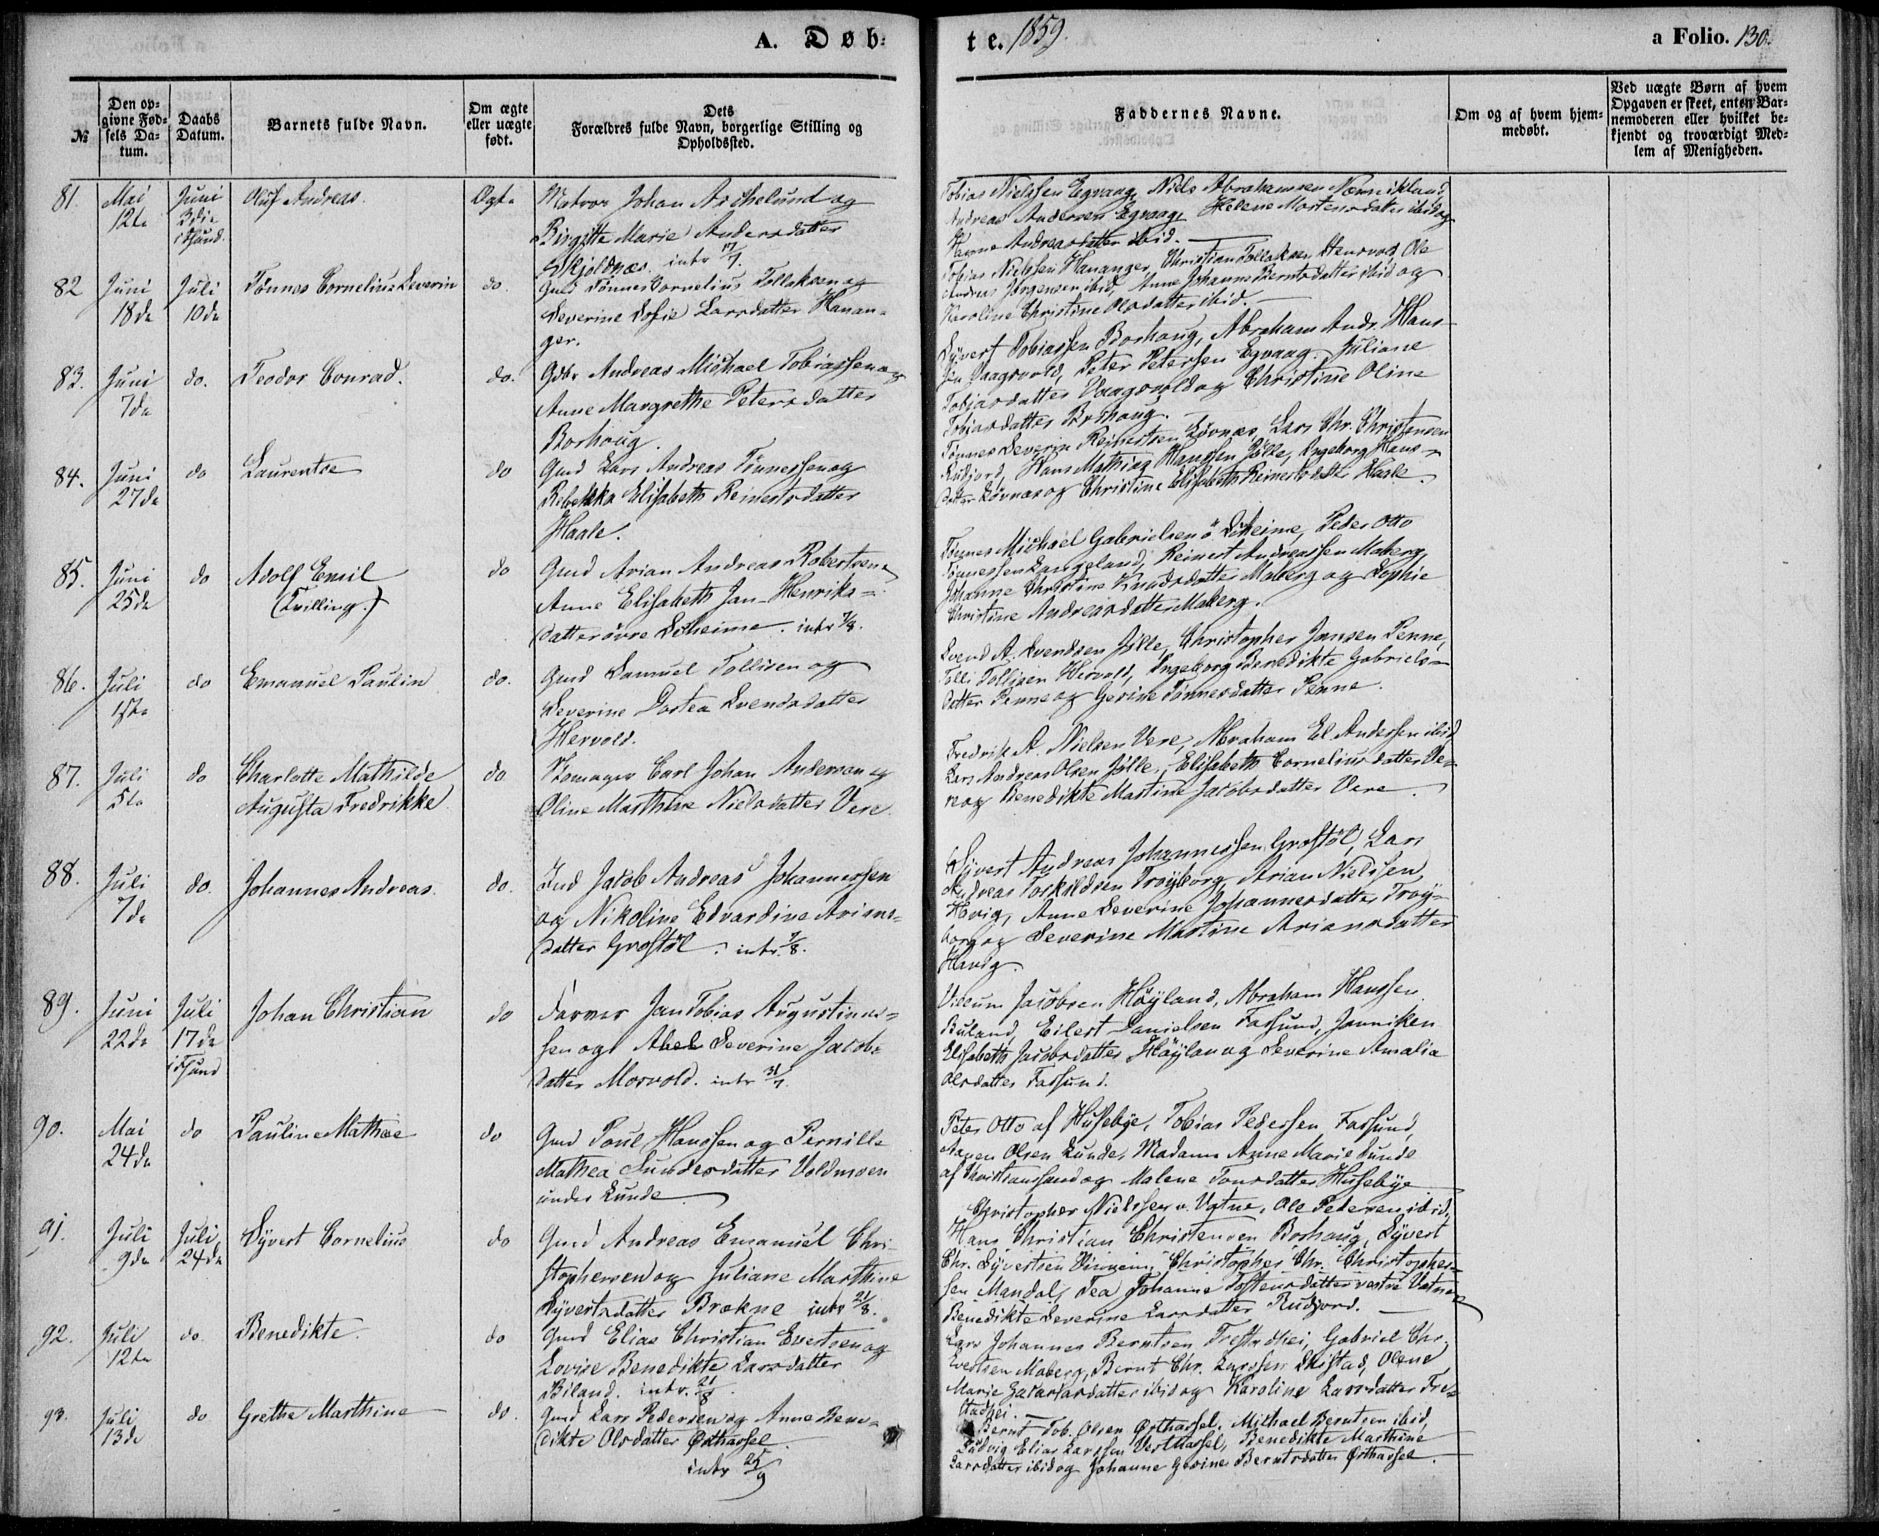 A. Døb-
te. 1859.
a Folio. 130.
№
Den op-
givne Fød-
sels Da-
tum.
Daabs
Datum.
Barnets fulde Navn.
Om ægte
eller uægte
født.
Dets
Forældres fulde Navn, borgerlige Stilling og
Opholdssted.
Faddernes Navne.
Om og af hvem hjem-
medøbt.
Ved uægte Børn af hvem
Opgaven er skeet, enten Bar-
nemoderen eller hvilket be-
kjendt og troværdigt Med-
lem af Menigheden.
81.
Mai
12te
Juni
3die
Oluf Andreas.
Ægte
Matros Johan Aschelund og
Birgitte Marie Andersdatter
Skjoldnæs. intr 17/7.
Tobias Nielssen Egvaag, Niels Abrahamsen
Andreas Andersen Egvaag, Helene Mortensdatter ibid og
Hanne Andreasdatter ibid.
82
Juni
18de
Juli
10de
Tønnes Cornelius Severin
do.
Gmd Tønnes Cornelius Tollaksen og
Severine Sofie Larsdatter Hanan-
ger.
Tobias Nielssen Hananger, Christian Tollaksen Stensvold, Ole
Andreas Jørgensen ibid, Anne Johanne Berntsdatter ibid og
Karoline Christine Olsdatter ibid.
83.
Juni
7de
do.
Teodor Conrad.
do.
Gdbr Andreas Michael Tobiassen og
Anne Margrethe Petersdatter
Borhoug.
Syvert Tobiassen Borhaug, Abraham Andr. Hans-
sen Vaagsvold, Peter Petersen Egvaag. Juliane
Tobiasdatter Vaagsvold og Christine Oline
Tobiasdatter Borhaug.
84.
Juni
27de
do
Laurentse
do
Gmd Lars Andreas Tønnessen og
Rebekka Elisabeth Reinertsdatter
Haale.
Tønnes Severin Reinertsen Løvnæs, Lars Chr. Christensen
Rudjord, Hans Mathias Hanssen Jølle, Ingeborg Hans-
datter Løvnæs og Christine Elisabeth Reinertsdatter Haale.
85.
Juni
25de
do
Adolf Emil
(Tvilling.)
do
Gmd Arian Andreas Robertsen
Anne Elisabeth Jan-Henriks-
datter øvre Skeime. intr 7/8.
Tønnes Michael Gabrielsen ö Skeime, Peder Otto
Tønnessen Langeland, Reinert Andreassen Maberg,
Johanne Christine Knudsdatter Maberg og Sophie
Christine Andreasdatter Maberg.
86.
Juli
1ste
do
Emanuel Paulin
do.
Gmd Samuel Tollisen og
Severine Dortea Svendsdatter
Hervold.
Svend A. Svendsen Jølle, Christopher Jansen Penne,
Tolli Tollisen Hervold, Ingeborg Benedikte Gabriels-
datter Penne og Gesine Tønnesdatter Penne.
87.
Juli
5te
do
Charlotte Mathilde
Augusta Fredrikke
do
Skomager Carl Johan Andersen og
Oline Marthine Nielsdatter Vere.
Fredrik A. Nielsen Vere, Abraham El. Andersen ibid
Lars Andreas Olsen Jølle, Elisabeth Corneliusdatter Ve-
re og Benedikte Martine Jacobsdatter Vere.
88.
Juli
7de
do.
Johannes Andreas.
do.
Ind Jacob Andreas Johannessen
og Nikoline Edvardine Arians-
datter Grostøl. intr. 7/8.
Syvert Andreas Johannessen Grostøl, Lars
Andreas Torkildsen Trøyborg, Arian Nielssen
Havig, Anne Severine Johannesdatter Trøy-
borg og Severine Martine Ariansdatter
Havig.
89.
Juni
22de
Juli
17de
Johan Christian
do
Farver Jan Tobias Augustinus-
sen og Abel Severine Jacobs-
datter Morvold. intr 31/7.
Villum Jacobsen Høyland, Abraham Hanssen
Buland, Eilert Danielsen Farsund, Janniken
Elisabeth Jacobsdatter Høyland og Severine Amalia
Olsdatter Farsund.
90.
Mai
24de
do
Pauline Mathæa
do
Gmd Poul Hanssen og Pernille
Mathea Sundesdatter Voldmoen
under Lunde
Peter Otto af Husebye, Tobias Pedersen Farsund,
Aanen Olsen Lunde, Madame Anne Marie Lunde
af Christianssand og Malene Tonsdatter Husebye
91.
Juli
9de
Juli
24de
Syvert Cornelius
do
Gmd Andreas Emanuel Chri-
stophersen og Juliane Marthine
Syvertsdatter Brækne intr 21/8.
Christopher Nielssen v. Vatne, Ole Pedersen ibid,
Hans Christian Christensen Borhaug, Syvert
Chr. Syvertsen Vinnem, Christopher Chr. Christopher-
sen Mandal, Tea Johanne Tostensdatter vestre Vatne
Benedikte Severine Larsdatter Rudjord.
92.
Juli
12te
do
Benedikte.
do
Gmd Elias Christian Evertsen og
Lovise Benedikte Larsdatter
Biland. intr. 21/8.
Lars Johannes Berntsen Frestadhei, Gabriel Chr.
Evertsen Maberg, Bernt Chr. Larssen Skistad, Olene
Marie Zakariasdatter ibid og Karoline Larsdatter Fre-
stadhei.
93.
Juli
13de
do
Grethe Marthine
do.
Gmd Lars Pedersen og Anne Bene-
dikte Olsdatter Østhassel.
intr 25/9
Bernt Tob. Olsen Østhassel, Michael Berntsen ibid,
Ludvig Elias Larssen Vesthassel, Benedikte Marthine
Larsdatter ibid og Johanne Gesine Berntsdatter Østhassel.